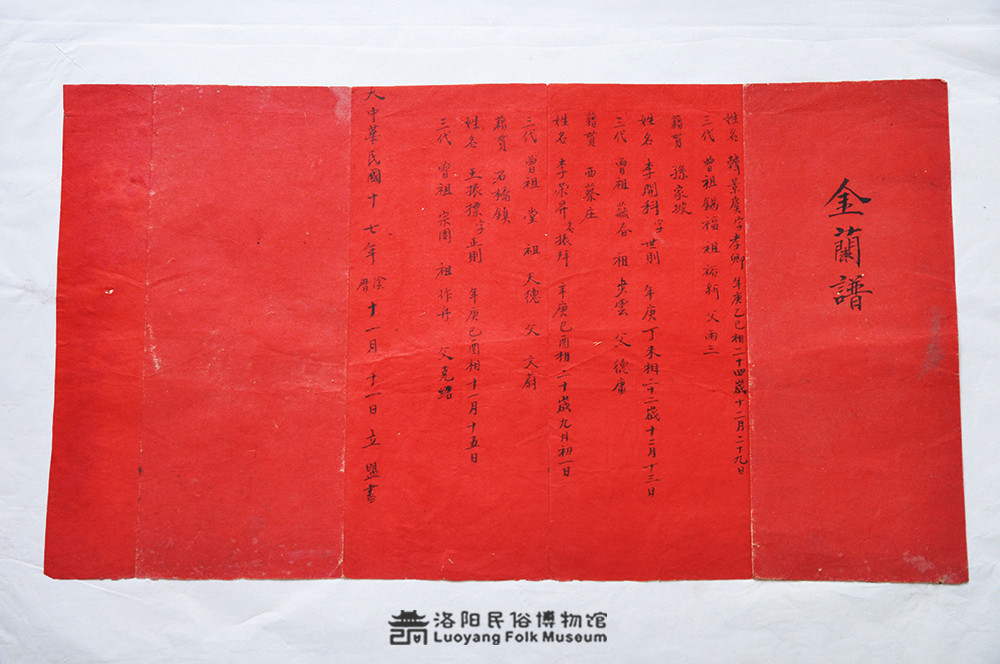 金蘭譜
姓名 韓景廣字孝卿 年庚乙巳相二十四歲十二月二十九日
三代 曾祖錫福 祖裕新 父雨三
籍貫 孫家坡
姓名 李開科字世則 年庚丁未相二十二歲十二月十三日
三代 曾祖 祖步雲 父德庸
籍貫 西蔡庄
姓名 李榮昇 年庚己酉相二十歲九月初一日
三代 曾祖堂 祖天德 父文蔚
籍貫 石橋鎮
姓名 王振標字正則 年庚己酉相十一月十五日
三代 曾祖宗周 祖作舟 父克紹
大中華民國十七年陰曆十一月十一日立盟書
洛阳民俗博物馆
Luoyang Folk Museum